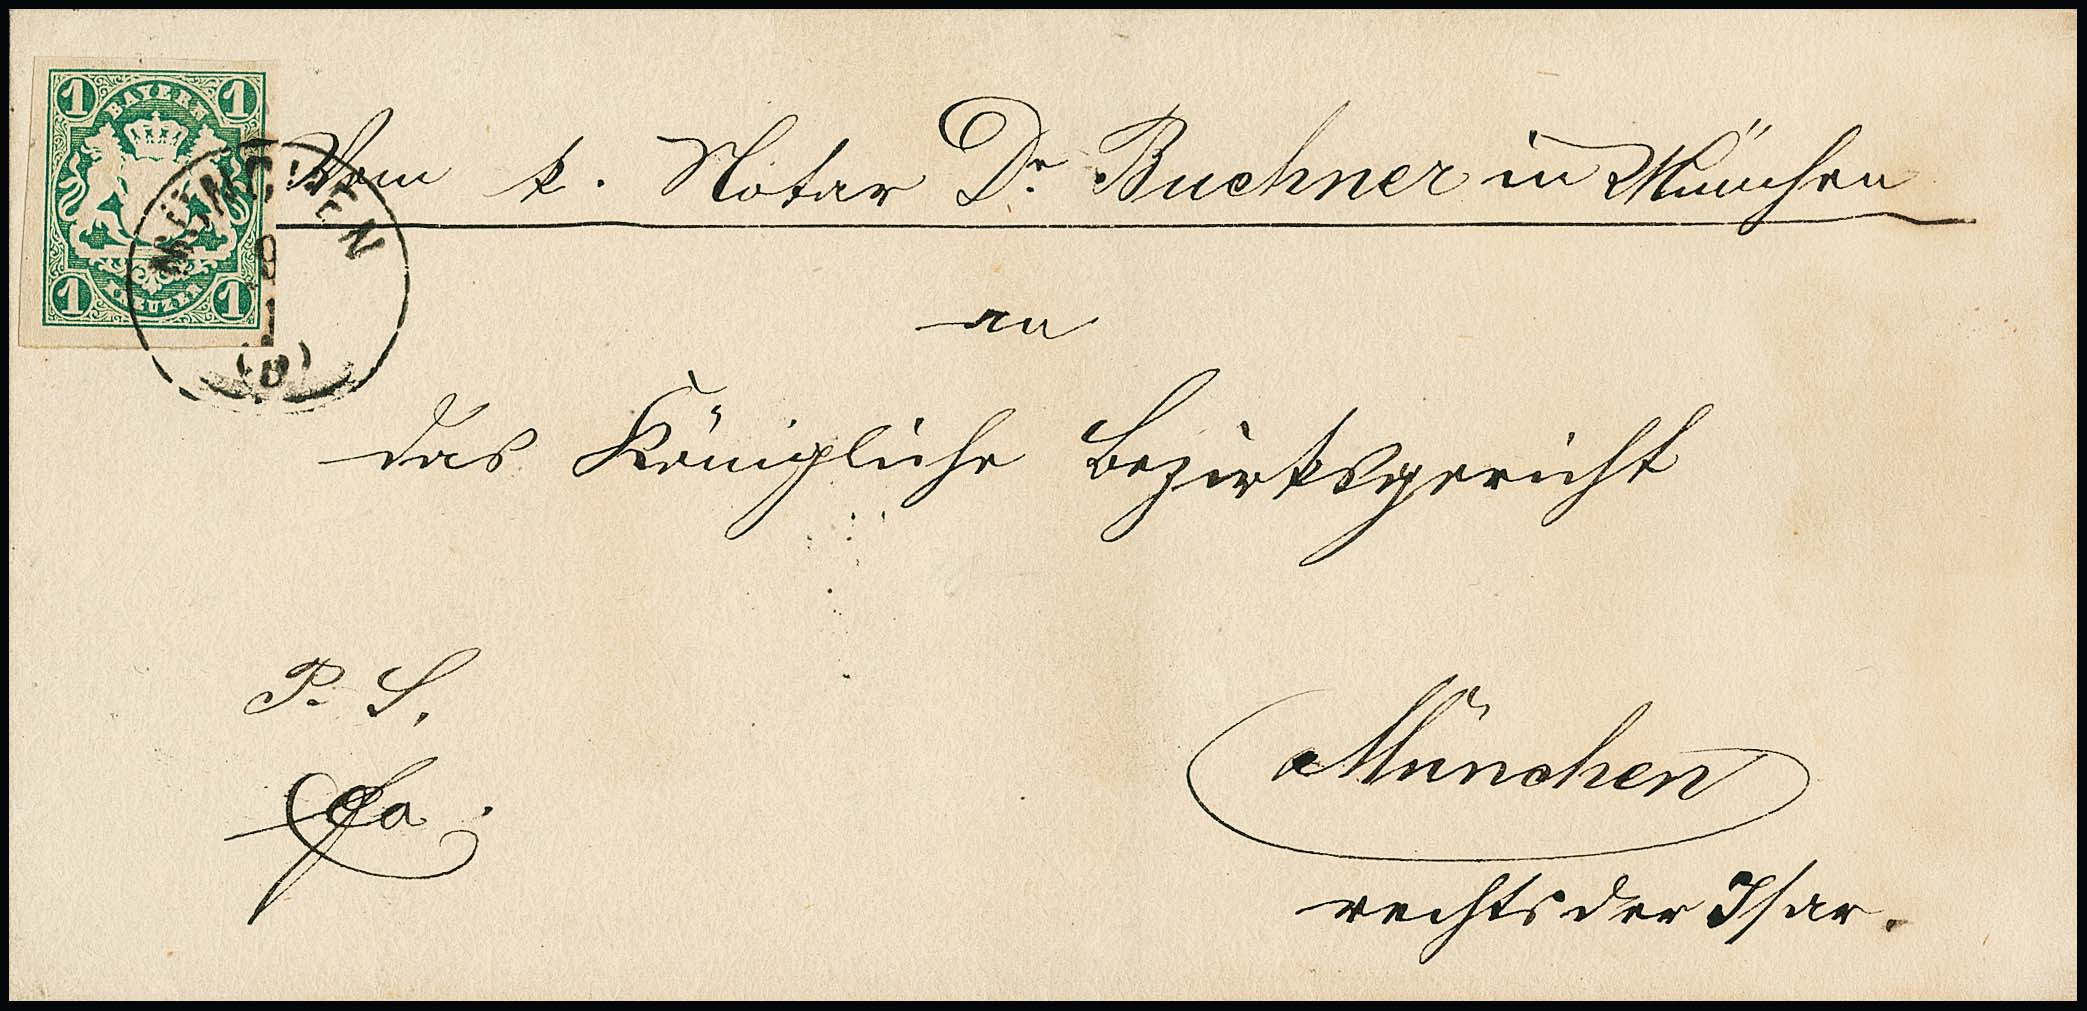 1 BAYERN 1
1 KREUZER 1
MÜNCHEN
Vom k. Notar Dr. Buchner in München
an
das Königliche Bezirksgericht
P. S.
München
rechts der Isar.